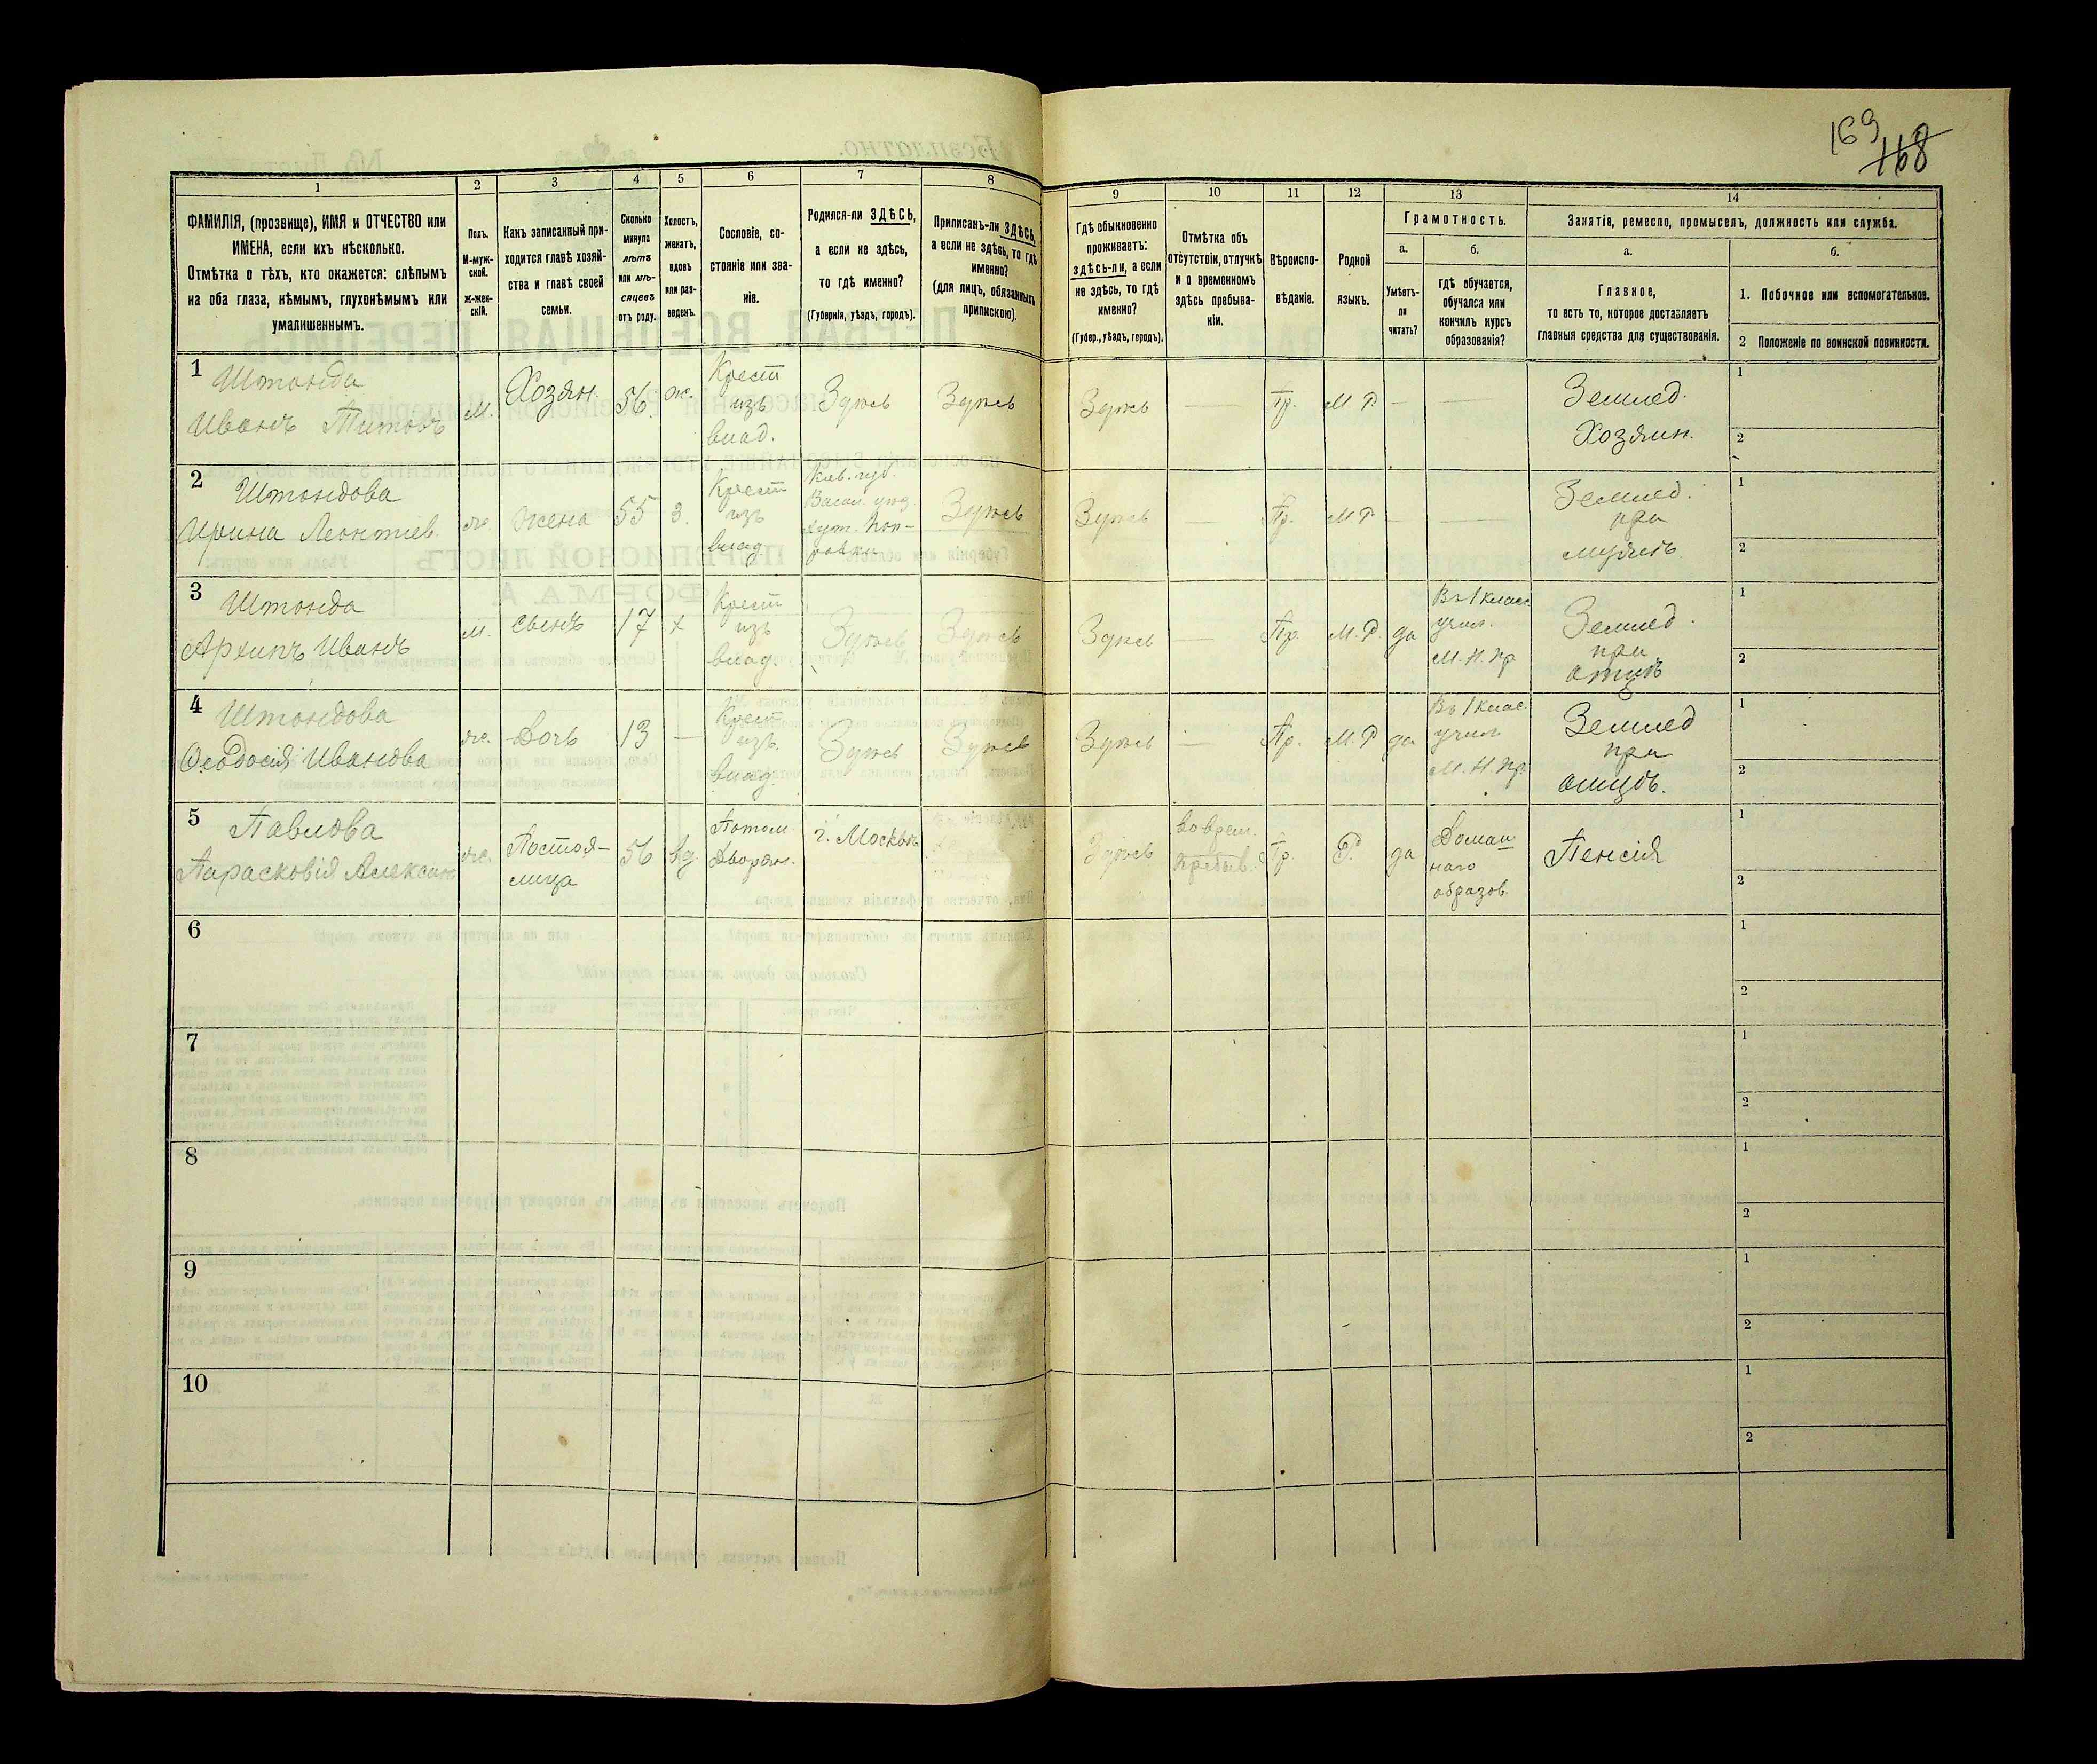 169
168
1
2
3
4
5
6
7
8
9
10
11
12
13
14
ФАМИЛІЯ, (прозвище), ИМЯ и ОТЧЕСТВО или
ИМЕНА, если ихъ нѣсколько.
Отмѣтка о тѣхъ, кто окажется: слѣпымъ
на оба глаза, нѣмымъ, глухонѣмымъ или
умалишеннымъ.
Полъ.
М-муж-
ской.
ж-жен-
скій.
Какъ записанный при-
ходится главѣ хозяй-
ства и главѣ своей
семьи.
Сколько
минуло
лѣтъ
или мѣ-
сяцевъ
отъ роду.
Холостъ,
женатъ,
вдовъ
или раз-
веденъ.
Сословіе, со-
стояніе или зва-
ніе.
Родился-ли ЗДѢСЬ,
а если не здѣсь,
то гдѣ именно?
(Губернія, уѣздъ, городъ).
Приписанъ-ли ЗДѢСЬ,
а если не здѣсь, то гдѣ
именно?
(для лицъ, обязанныхъ
припискою).
Гдѣ обыкновенно
проживаетъ:
здѣсь-ли, а если
не здѣсь, то гдѣ
именно?
(Губер., уѣздъ, городъ).
Отмѣтка объ
отсутствіи, отлучкѣ
и о временномъ
здѣсь пребыва-
ніи.
Вѣроиспо-
вѣданіе.
Родной
языкъ.
Грамотность.
а.
Умѣетъ-
ли
читать?
б.
гдѣ обучается,
обучался или
кончилъ курсъ
образованія?
Занятія, ремесло, промыселъ, должность или служба.
а.
Главное,
то есть то, которое доставляетъ
главныя средства для существованія.
б.
1. Побочное или вспомогательное.
2 Положеніе по воинской повинности.
1
Штонда
Иванъ Титовъ
м.
Хозяин.
56.
ж.
Крест
изъ
влад.
Здѣсь
Здѣсь
Здѣсь
—
Пр.
М Р.
—
—
Землед.
Хозяин.
1
2
2
Штондова
Ирина Леонтіев.
ж.
жена
55
З.
Крест
изъ
влад.
Кіев. губ.
Васил. уѣз.
Здѣсь
Здѣсь
—
Пр.
М Р
—
—
Землед.
при
мужѣ.
1
2
3
Штонда
Архипъ Иванъ
м.
сынъ
17
х
Крест
изъ
влад.
Здѣсь
Здѣсь
Здѣсь
—
Пр.
М. Р.
да
Въ 1 класс
учил.
М. Н. Пр
Землед.
при
отцѣ
1
2
4
Штондова
Ѳеодосія Иванова
ж.
Дочь
13
—
Крест
изъ.
влад.
Здѣсь
Здѣсь
Здѣсь
—
Пр.
М. Р
да
Въ 1 клас.
учил
М. Н. Пр.
Землед
при
отцѣ.
1
2
5
Павлова
Парасковія Алексан
ж.
Постоя-
лица
56
вд
Потом.
Дворян.
г. Москвѣ
Здѣсь
во врем.
пребыв.
Пр.
Р.
да
Домаш
наго
образов.
Пенсія
1
2
6
1
2
7
1
2
8
1
2
9
1
2
10
1
2